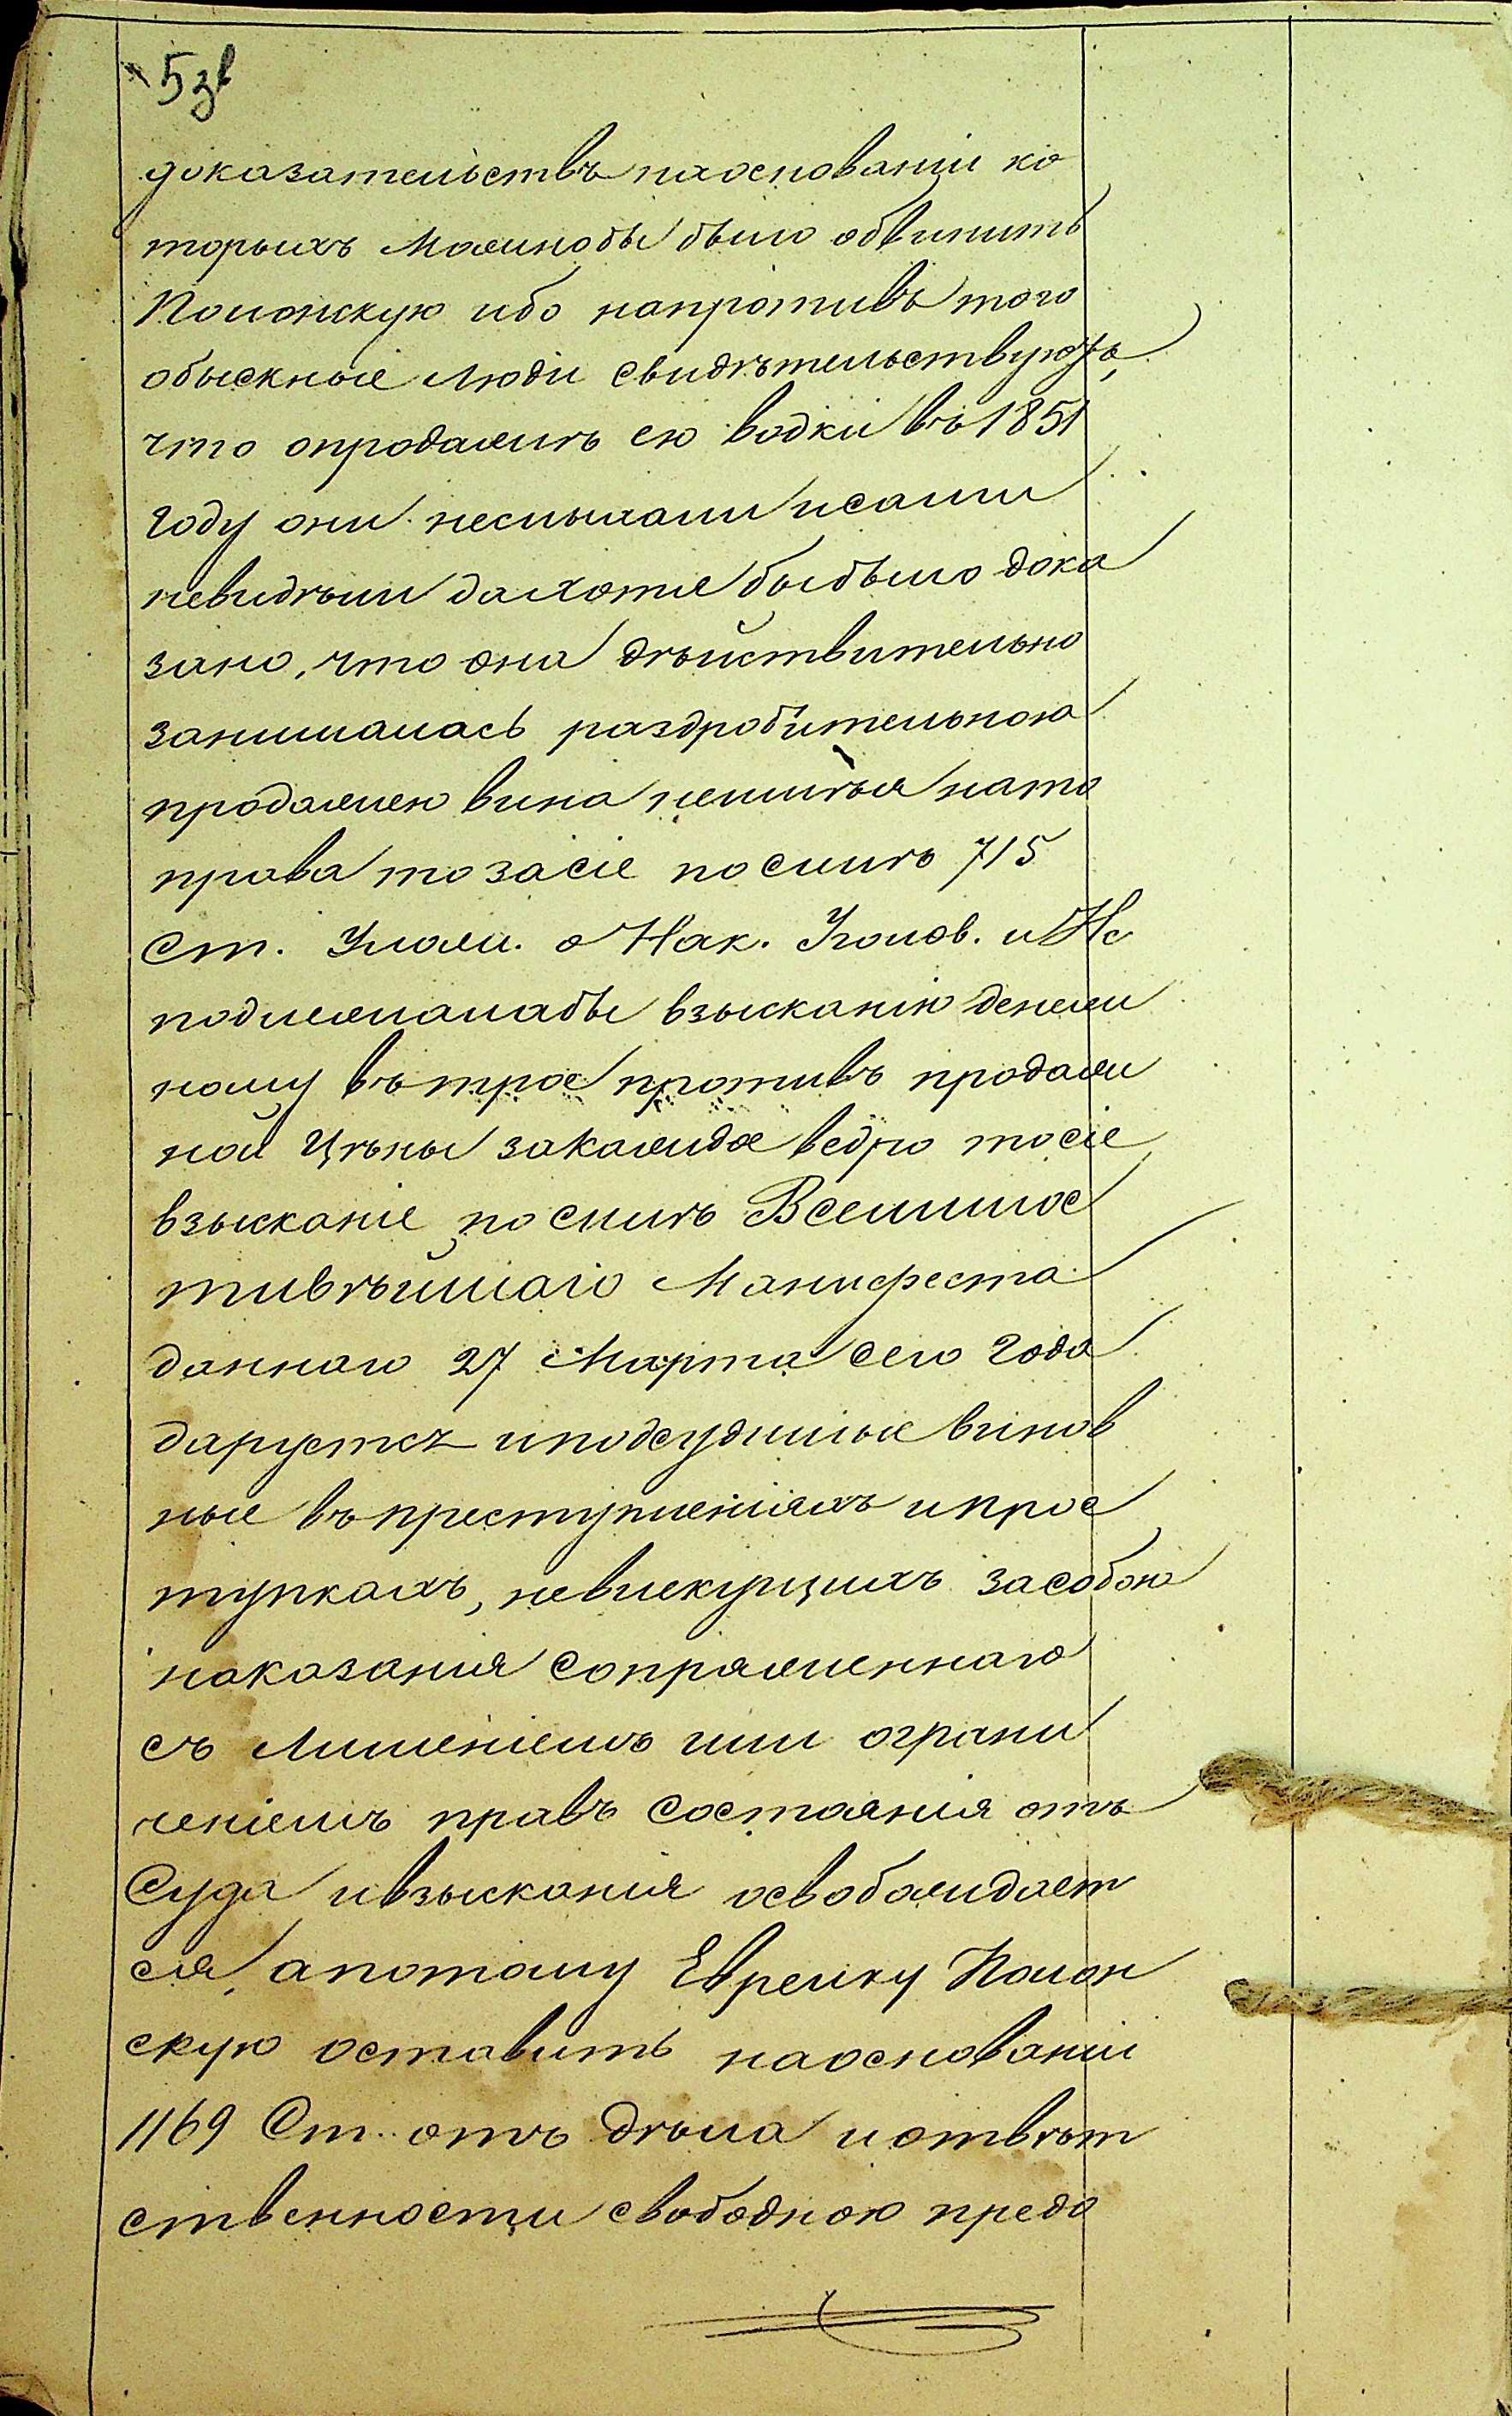 5 зв
доказательствъ наосновании ко
торыхъ можнобы было обвинить
Полонскую ибо напротивъ того
обыскные люди свидѣтельствуютъ,
что опродажѣ ею водки въ 1851
году они неслыхали исами
невидѣли дахотя быбыло дока
зано, что она дѣйствительно
занималась раздробительною
продажею вина неимѣя нато
права то засіе посилѣ 715
ст. Улож. о Нак. Уголов. и Ис
подлежалабы взысканію денеж
ному въ трое противъ продаж
ной цѣны закаждое ведро тосіе
взысканіе по силѣ Всемилос
тивѣйшаго Манифеста
даннаго 27 Марта сего года
дарустъ иподсудимые винов
ные въ преступленіяхъ ипрос
тупкахъ, невлекущихъ засобою
наказанія сопряженнаго
съ лишеніемъ или ограни
ченіемъ правъ состоянія отъ
Суда ивзысканія освобождает
ся, апотому Еврейку Полон
скую оставить наоснованіи
1169 Ст. отъ дѣла иотвѣт
ственности свободною предо